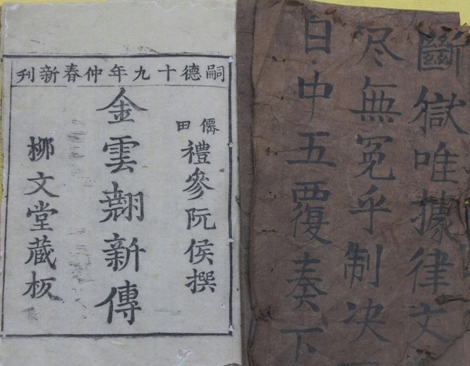 斷獄唯據律文
尽無冤乎制决
日中五覆奏下
嗣德十九年仲春新刊
僊田
禮參阮侯撰
金雲翹新傳
栁文堂藏板